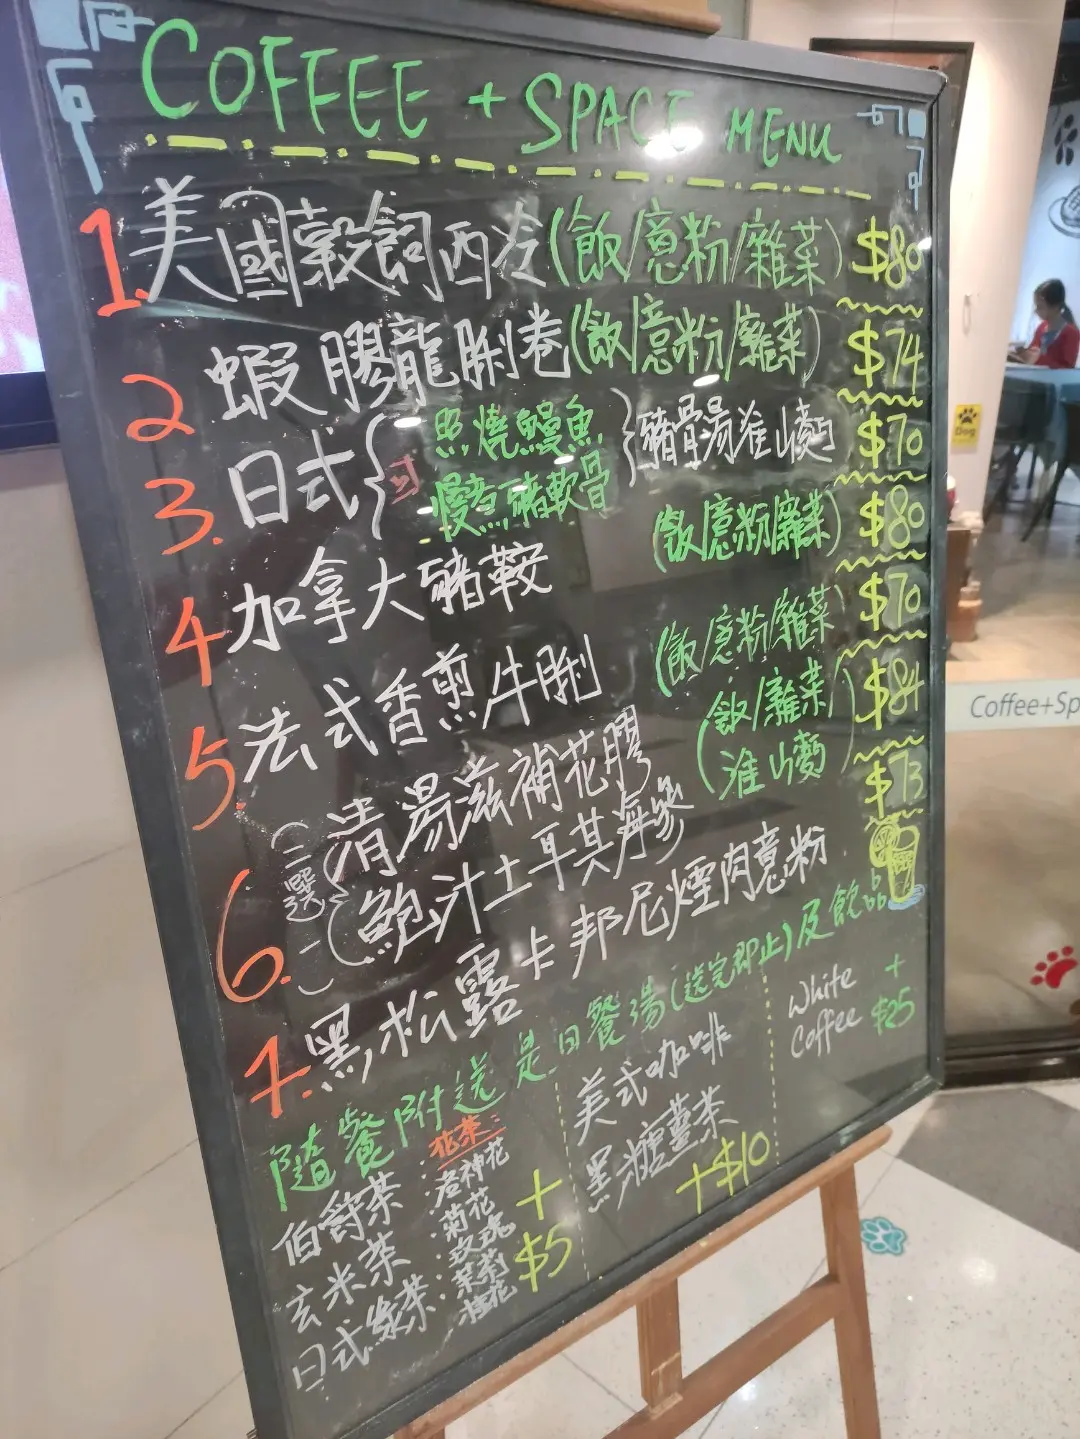 COFFEE + SPACE MENU
1. 美國穀飼西冷(飯/意粉/雜菜) $80
2 蝦膠龍脷卷(飯/意粉/雜菜) $74
3. 日式{照燒鰻魚 慢煮豬軟骨}豬骨湯淮山麵 $70
4 加拿大豬鞍 (飯/意粉/雜菜) $80
5. 法式香煎牛脷 (飯/意粉/雜菜) $70
6. (二選一) 清湯滋補花膠 (飯/雜菜/ $84
鮑汁土耳其海參 淮山麵)
7. 黑松露卡邦尼煙肉意粉 $73
隨餐附送是日餐湯(送完即止)及飲品
伯爵茶
玄米茶
日式綠茶
花茶:
洛神花
菊花
玫瑰
茉莉
桂花
+
$5
美式咖啡
黑糖薑茶
+$10
White
Coffee
+
$25
Coffee+Sp
Dog